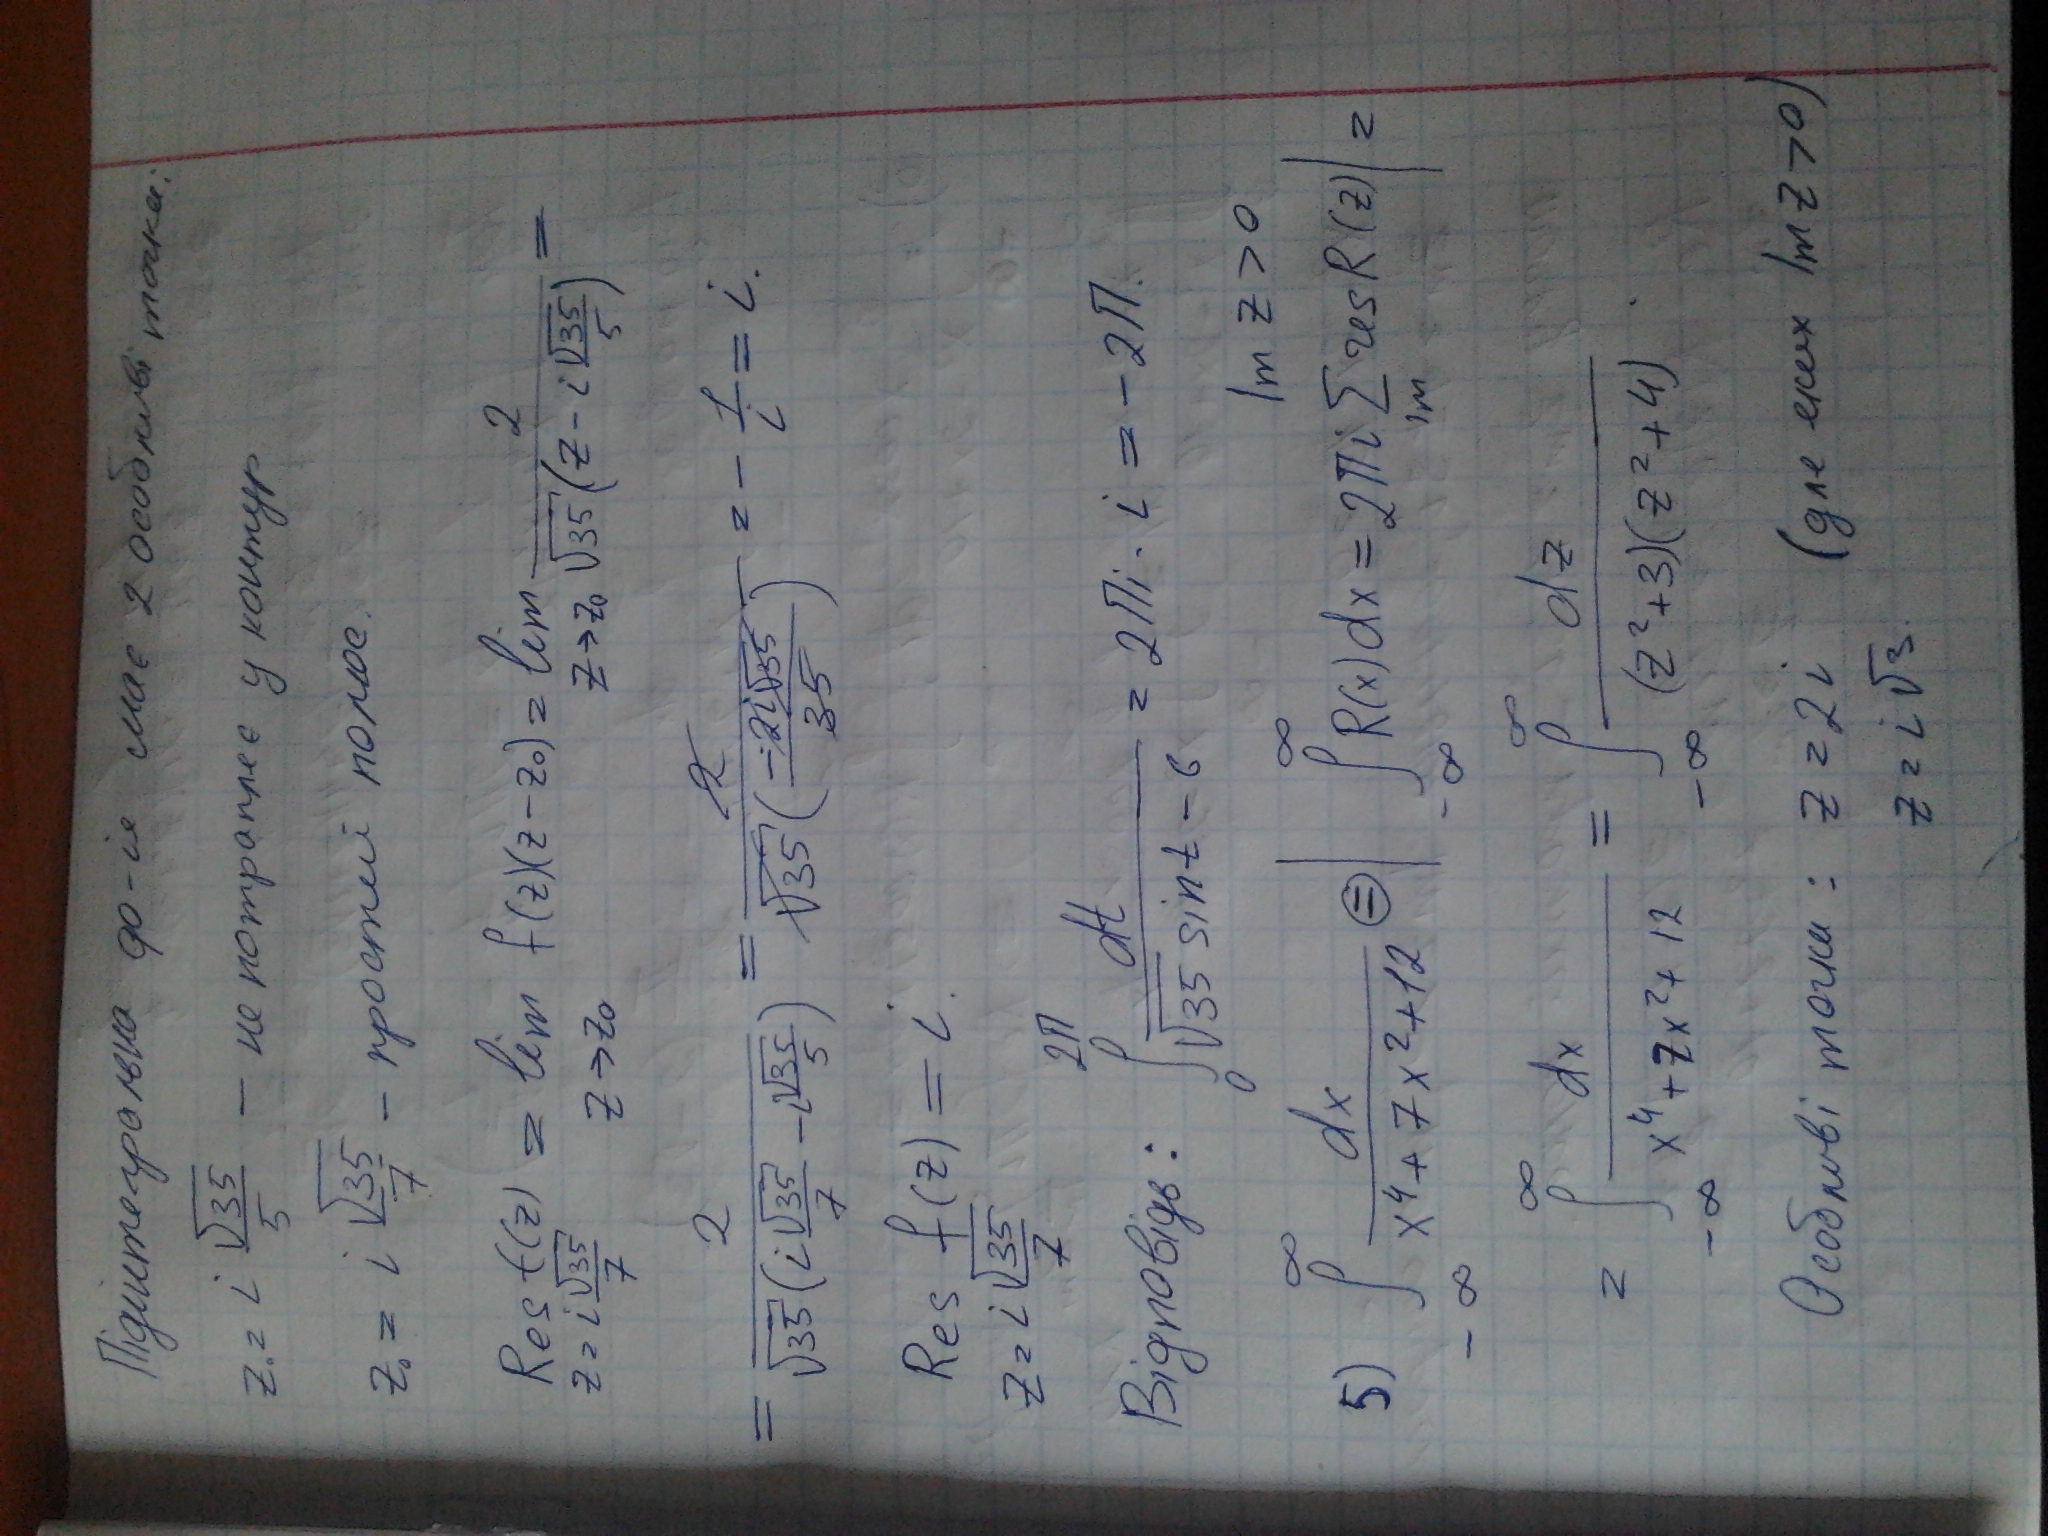 Підінтегральна ф-ія має 2 особливі точки:
z₀ = i √35/5 – не потрапляє у контур
z₀ = i √35/7 – простий полюс.
Res f(z) = lim f(z)(z – z₀) = lim 2/(√35(z – i √35/5)) =
z = i √35/7   z→z₀   z→z₀
= 2/(√35(i √35/7 – i √35/5)) = 2/(√35(–2i√35/35)) = – 1/i = i.
Res f(z) = i.
z = i √35/7
Відповідь: ∫₀^2π dt/(√35 sin t – 6) = 2πi · i = –2π.
Im z > 0
5) ∫_-∞^∞ dx/(x⁴ + 7x² + 12) = | ∫_-∞^∞ R(x)dx = 2πi ∑ res R(z) | =
Im
= ∫_-∞^∞ dx/(x⁴ + 7x² + 12) = ∫_-∞^∞ dz/((z² + 3)(z² + 4)).
Особливі точки: z = 2i (для яких Im z > 0)
z = i √3.